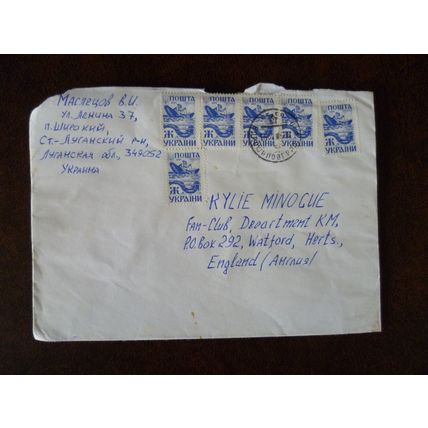 Маслецов В.И.
ул. Ленина 37,
п. Широкий,
Ст-Луганский р-н,
Луганская обл., 349052
Украина
ПОШТА
Ж
УКРАЇНИ
ПОШТА
Ж
УКРАЇНИ
ПОШТА
Ж
УКРАЇНИ
ПОШТА
Ж
УКРАЇНИ
ПОШТА
Ж
УКРАЇНИ
ПОШТА
Ж
УКРАЇНИ
KYLIE MINOGUE
Fan-Club, Department KM,
P.O.Box 292, Watford, Herts.,
England (Англия)